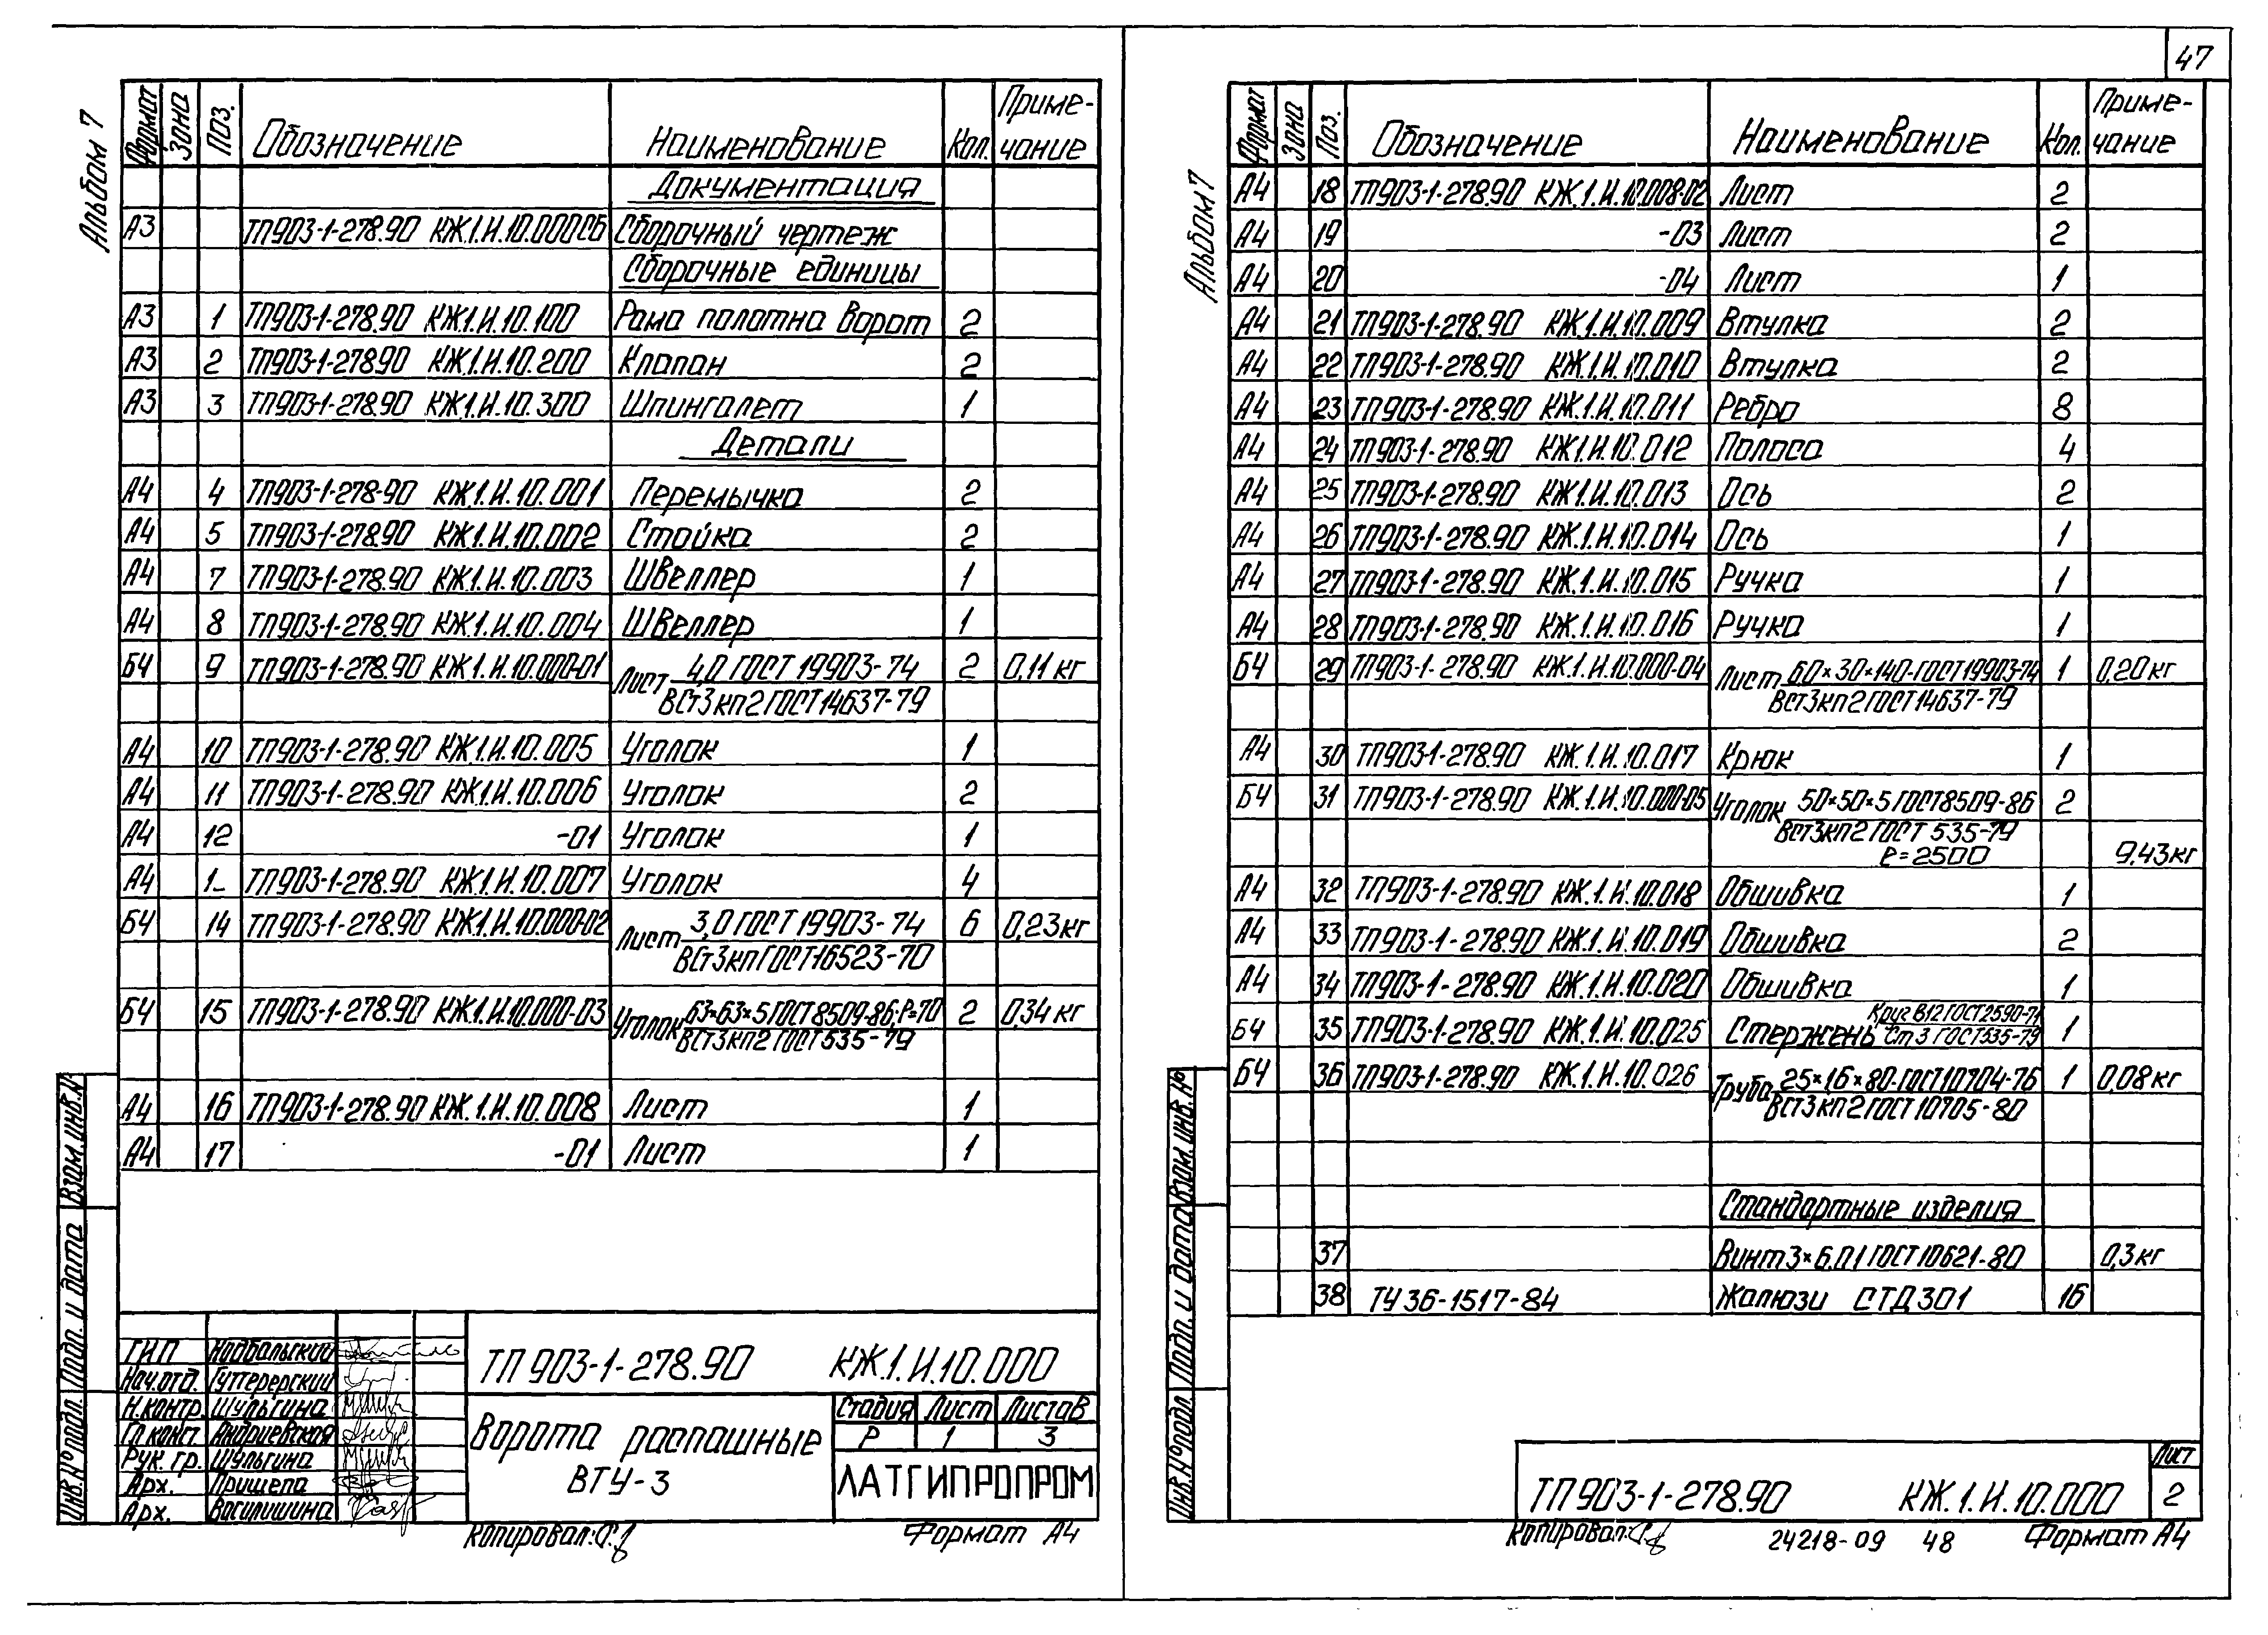 47
Альбом 7
Формат Зона Поз. Обозначение Наименование Кол. Приме-
чание
Документация
А3 ТП903-1-278.90 КЖ.1.И.10.000СБ Сборочный чертеж
Сборочные единицы
А3 1 ТП903-1-278.90 КЖ1.И.10.100 Рама полотна ворот 2
А3 2 ТП903-1-278.90 КЖ.1.И.10.200 Клапан 2
А3 3 ТП903-1-278.90 КЖ1.И.10.300 Шпингалет 1
Детали
А4 4 ТП903-1-278-90 КЖ.1.И.10.001 Перемычка 2
А4 5 ТП903-1-278.90 КЖ.1.И.10.002 Стойка 2
А4 7 ТП903-1-278.90 КЖ.1.И.10.003 Швеллер 1
А4 8 ТП903-1-278.90 КЖ.1.И.10.004 Швеллер 1
БЧ 9 ТП903-1-278.90 КЖ.1.И.10.000-01 Лист 4,0 ГОСТ 19903-74 2 0,11 кг
ВСт3кп2 ГОСТ14637-79
А4 10 ТП903-1-278.90 КЖ.1.И.10.005 Уголок 1
А4 11 ТП903-1-278.90 КЖ1.И.10.006 Уголок 2
А4 12 -01 Уголок 1
А4 1_ ТП903-1-278.90 КЖ.1.И.10.007 Уголок 4
БЧ 14 ТП903-1-278.90 КЖ.1.И.10.000-02 Лист 3,0 ГОСТ 19903-74 6 0,23кг
ВСт3кп ГОСТ16523-70
БЧ 15 ТП903-1-278.90 КЖ.1.И.10.000-03 Уголок 63×63×5 ГОСТ8509-86; ℓ=70 2 0,34 кг
ВСт3кп2 ГОСТ535-79
А4 16 ТП903-1-278.90 КЖ.1.И.10.008 Лист 1
А4 17 -01 Лист 1
Взам.инв.№
Подп. и дата
Инв.№ подл.
ГИП Надбальский
Нач.отд. Гуттерерский
Н.контр. Шульгина
Гл.конс. Андриевская
Рук. гр. Шульгина
Арх. Пришепа
Арх. Василишина
ТП 903-1-278.90 КЖ.1.И.10.000
Ворота распашные
ВТУ-3
Стадия Лист Листов
Р 1 3
ЛАТГИПРОПРОМ
Копировал:
Формат А4
Альбом 7
Формат Зона Поз. Обозначение Наименование Кол. Приме-
чание
А4 18 ТП903-1-278.90 КЖ.1.И.10.008-02 Лист 2
А4 19 -03 Лист 2
А4 20 -04 Лист 1
А4 21 ТП903-1-278.90 КЖ.1.И.10.009 Втулка 2
А4 22 ТП903-1-278.90 КЖ.1.И.10.010 Втулка 2
А4 23 ТП903-1-278.90 КЖ.1.И.10.011 Ребро 8
А4 24 ТП903-1-278.90 КЖ1.И.10.012 Полоса 4
А4 25 ТП903-1-278.90 КЖ1.И.10.013 Ось 2
А4 26 ТП903-1-278.90 КЖ.1.И.10.014 Ось 1
А4 27 ТП903-1-278.90 КЖ.1.И.10.015 Ручка 1
А4 28 ТП903-1-278.90 КЖ.1.И.10.016 Ручка 1
БЧ 29 ТП903-1-278.90 КЖ.1.И.10.000-04 Лист 6,0×30×140-ГОСТ19903-74 1 0,20кг
ВСт3кп2 ГОСТ14637-79
А4 30 ТП903-1-278.90 КЖ.1.И.10.017 Крюк 1
БЧ 31 ТП903-1-278.90 КЖ.1.И.10.000-05 Уголок 50×50×5 ГОСТ8509-86 2
ВСт3кп2 ГОСТ 535-79
ℓ=2500 9,43кг
А4 32 ТП903-1-278.90 КЖ.1.И.10.018 Обшивка 1
А4 33 ТП903-1-278.90 КЖ.1.И.10.019 Обшивка 2
А4 34 ТП903-1-278.90 КЖ.1.И.10.020 Обшивка 1
БЧ 35 ТП903-1-278.90 КЖ.1.И.10.025 Стержень Круг В12 ГОСТ2590-71 1
Ст 3 ГОСТ535-79
БЧ 36 ТП903-1-278.90 КЖ.1.И.10.026 Труба 25×1,6×80-ГОСТ10704-76 1 0,08кг
ВСт3кп2 ГОСТ 10705-80
Стандартные изделия
37 Винт3×6.01 ГОСТ10621-80 0,3кг
38 ТУ36-1517-84 Жалюзи СТД301 16
Взам.инв.№
Подп. и дата
Инв.№ подл.
ТП903-1-278.90 КЖ.1.И.10.000
Лист
2
Копировал:
24218-09 48
Формат А4